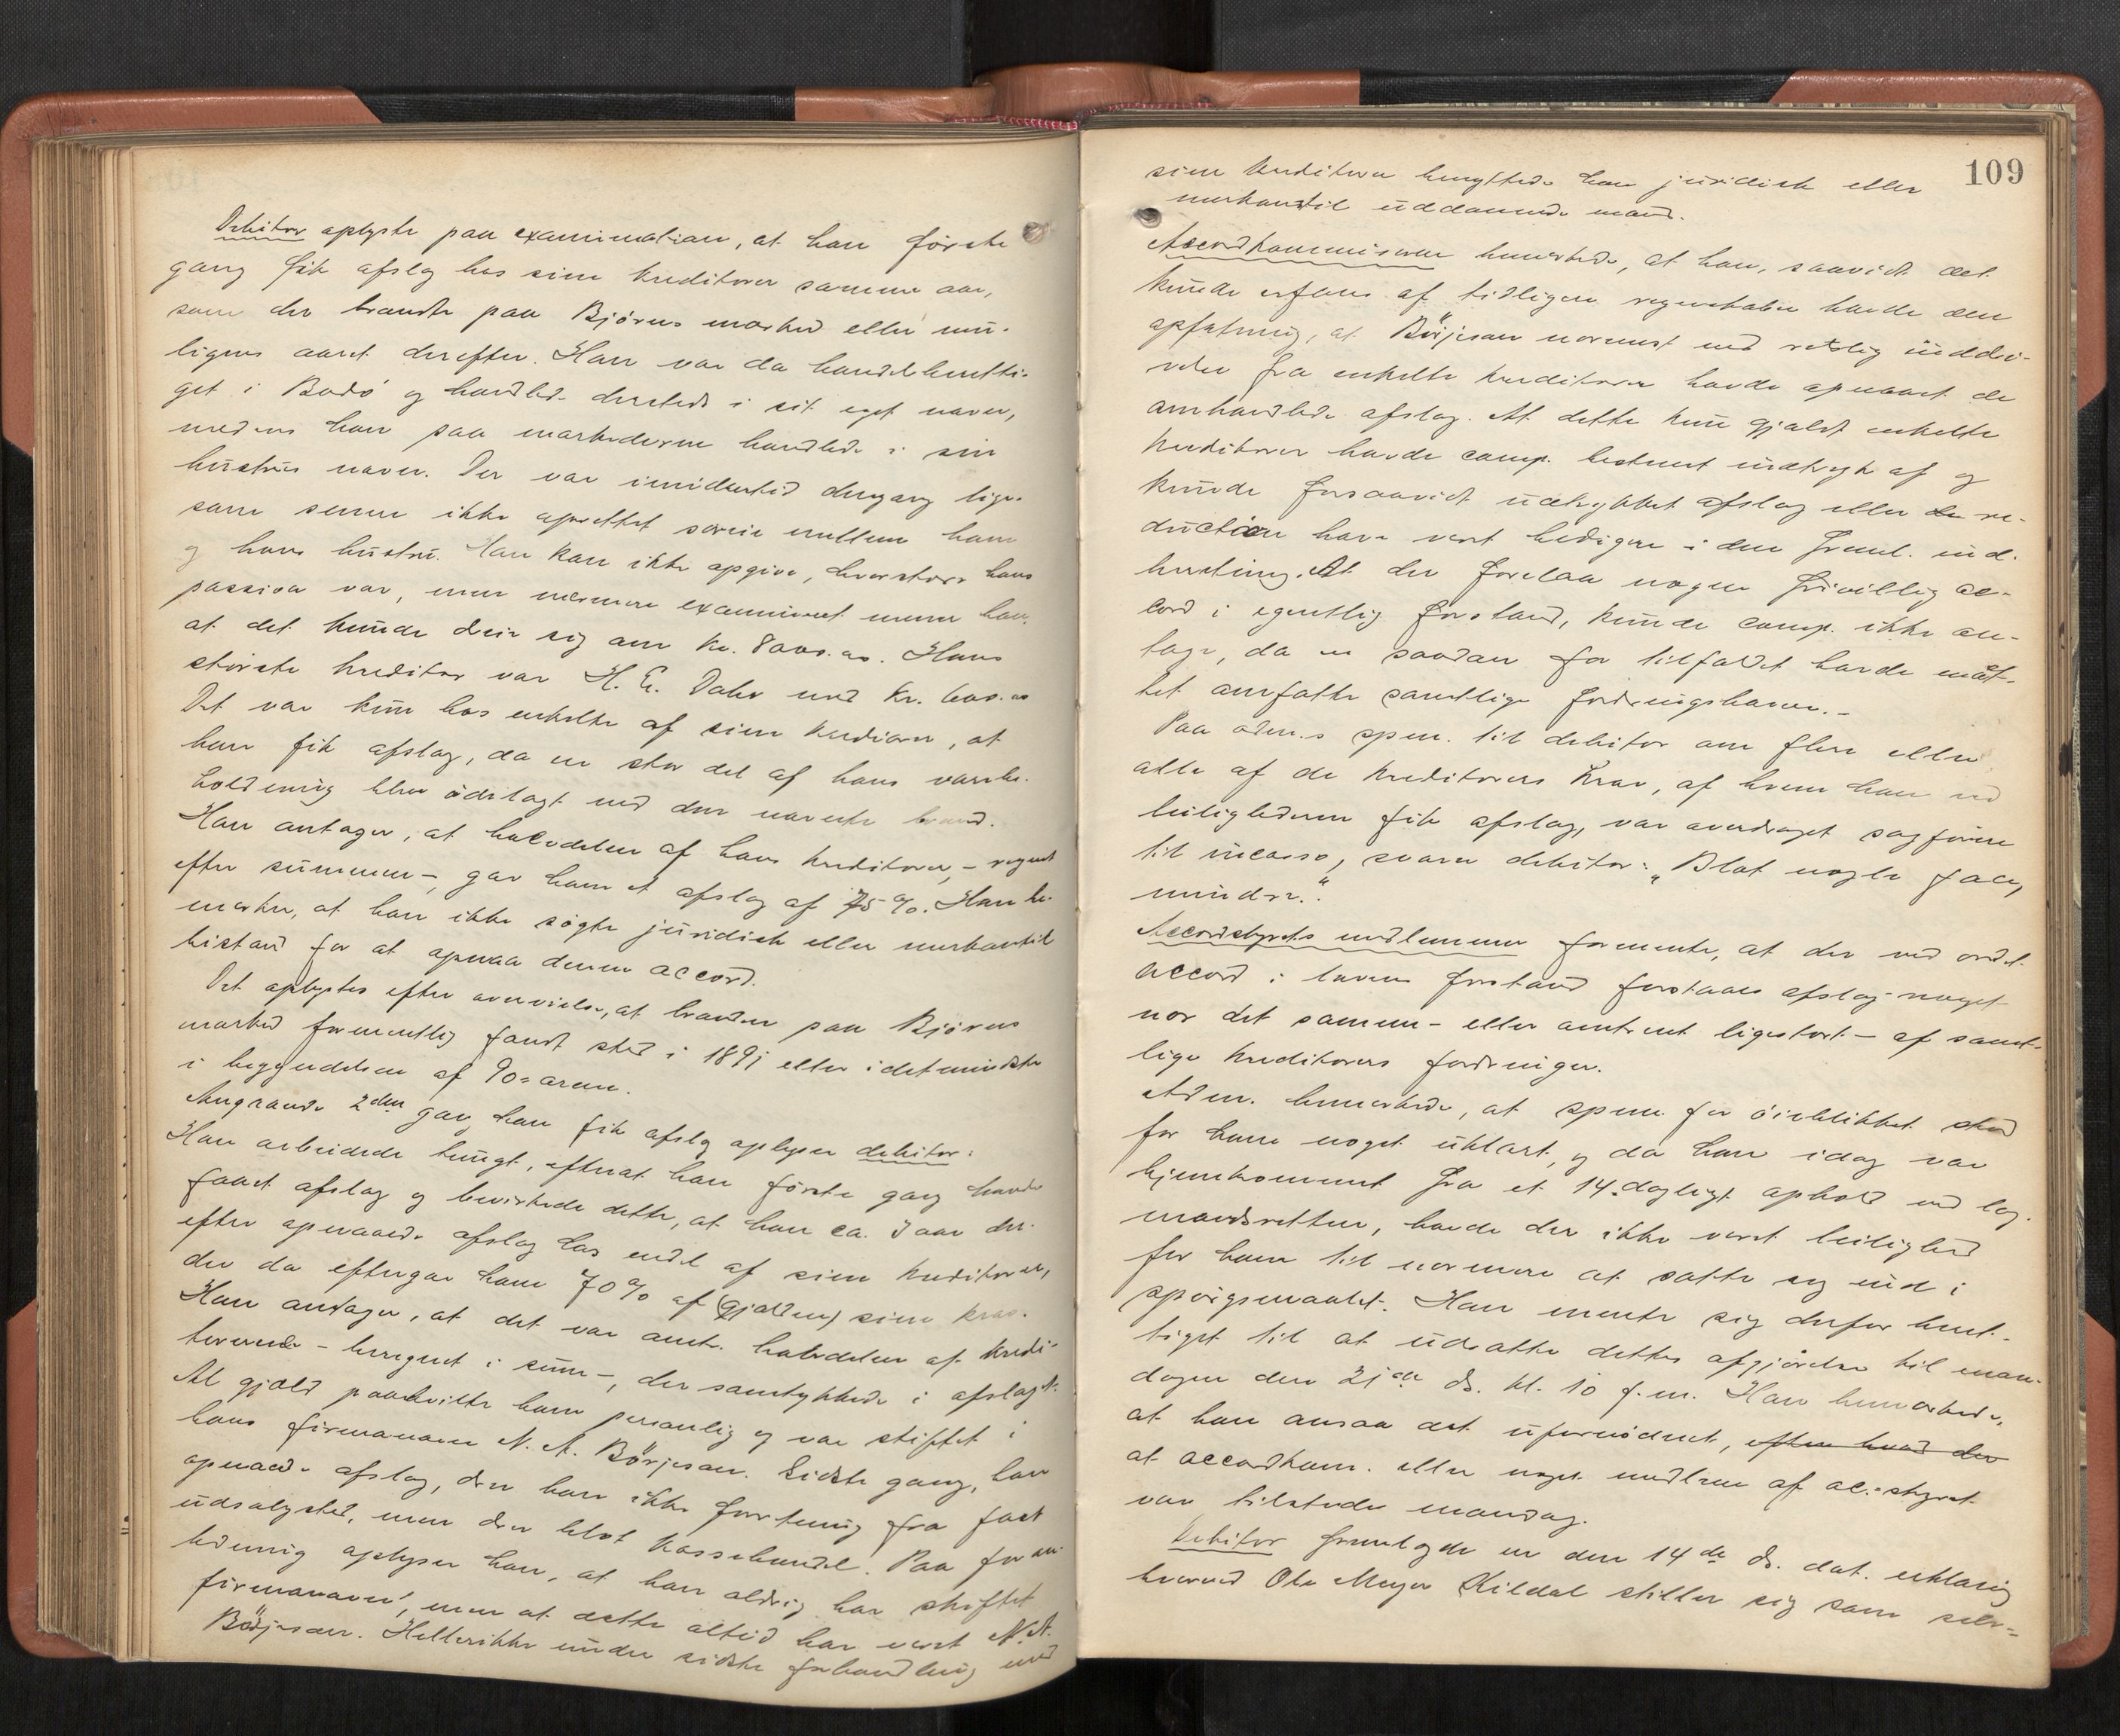 Debitor oplyste paa examination, at han første
gang fik afslag hos sine kreditorer samme aar,
som der brandte paa Bjørns marked eller mu-
ligens aaret derefter. Han var da handelsberetti-
get i Bodø og handled- dersteds i sit eget navn,
medens han paa markederne handlede i sin
hustrus navn. Der var imidlertid dengang lige-
som senere ikke oprettet særeie mellem ham
og hans hustru. Han kan ikke opgive, hvor store hans
passiva var, men nærmere examineret mener han,
at det kunde dreie sig om kr. 8000.00. Hans
største kreditor var H. E. Dahn med kr. 600.00
Det var kun hos enkelte af sine kreditorer, at
han fik afslag, da en stor del af hans varebe-
holdning blev ødelagt ved den nævnte brand.
Han antager, at halvdelen af hans kreditorer, - regnet
efter summen -, gav ham et afslag af 75 %. Han be-
merker, at han ikke søgte juridisk eller merkantil
bistand for at opnaa denne accord.
Det oplystes efter overveielse, at branden paa Bjørns
marked formentlig fandt sted i 1891 eller idetmindste
i begyndelsen af 90-arene.
Angaaende 2den gang han fik afslag oplyser debitor:
Han arbeidede tungt, efterat han første gang havde
faaet afslag og bevirkede dette, at han ca. 3 aar der-
efter opnaaede afslag hos endel af sine kreditorer,
der da eftergav ham 70 % af (gjælden) sine krav.
Han antager, at det var omtr. halvdelen af kredi-
torerne - beregnet i sum -, der samtykkede i afslaget.
Al gjæld paahvilte ham personlig og var stiftet i
hans firmanavn N. A. Börjeson. Sidste gang, han
opnaaede afslag, drev han ikke forretning fra fast
udsalgssted, men drev blot kassehandel. Paa foran-
ledning oplyser han, at han aldrig har skiftet
firmanavn, men at dette altid har været N. A.
Börjeson. Hellerikke under sidste forhandling med
109
sine kreditorer benyttede han juridisk eller
merkantil uddannede mænd.
Accordkommissæren bemerkede, at han, saavidt det
kunde erfares af tidligere regnskaber havde den
opfatning, at Börjeson nærmest ved retslig inddri-
velse fra enkelte kreditorer havde opnaaet de
omhandlede afslag. At dette kun gjaldt enkelte
kreditorer havde comp. bestemt indtryk af og
kunde forsaavidt udtrykket afslag eller de re-
duction have vært heldigere i den freml. ind-
beretning. At der forelaa nogen frivillig ac-
cord i egentlig forstand, kunde comp. ikke an-
tage, da en saadan for tilfældet havde maat-
tet omfatte samtlige fordringshavere. -
Paa adm.s spm. til debitor om flere eller
alle af de kreditorers krav, af hvem han ved
leilighederne fik afslag, var overdraget sagfører
til incasso, svarer debitor: "Blot nogle faa,
mindre."
Accordstyrets medlemmer formente, at der ved ordet
accord i lovens forstand forstaaes afslag noget-
nær det samme - eller omtrent ligestort - af samt-
lige kreditorers fordringer.
Adm. bemerkede, at spm. for øieblikket stod
for ham noget uklart, og da han idag var
hjemkommet fra et 14-dagligt ophold ved lag-
mandsretten, havde der ikke været leilighed
for ham til nærmere at sætte sig ind i
spørgsmaalet. Han mente sig derfor beret-
tiget til at udsætte dettes afgjørelse til man-
dagen den 21de ds. kl. 10 f.m. Han bemerkede,
at han ansaa det ufornødent, efter hvad der
at accordkom. eller noget medlem af ac.-styret
var tilstede mandag.
Debitor fremlagde en den 14de ds. dat. erklæring
hvorved Ole Meyer Kildal stiller sig som selv-